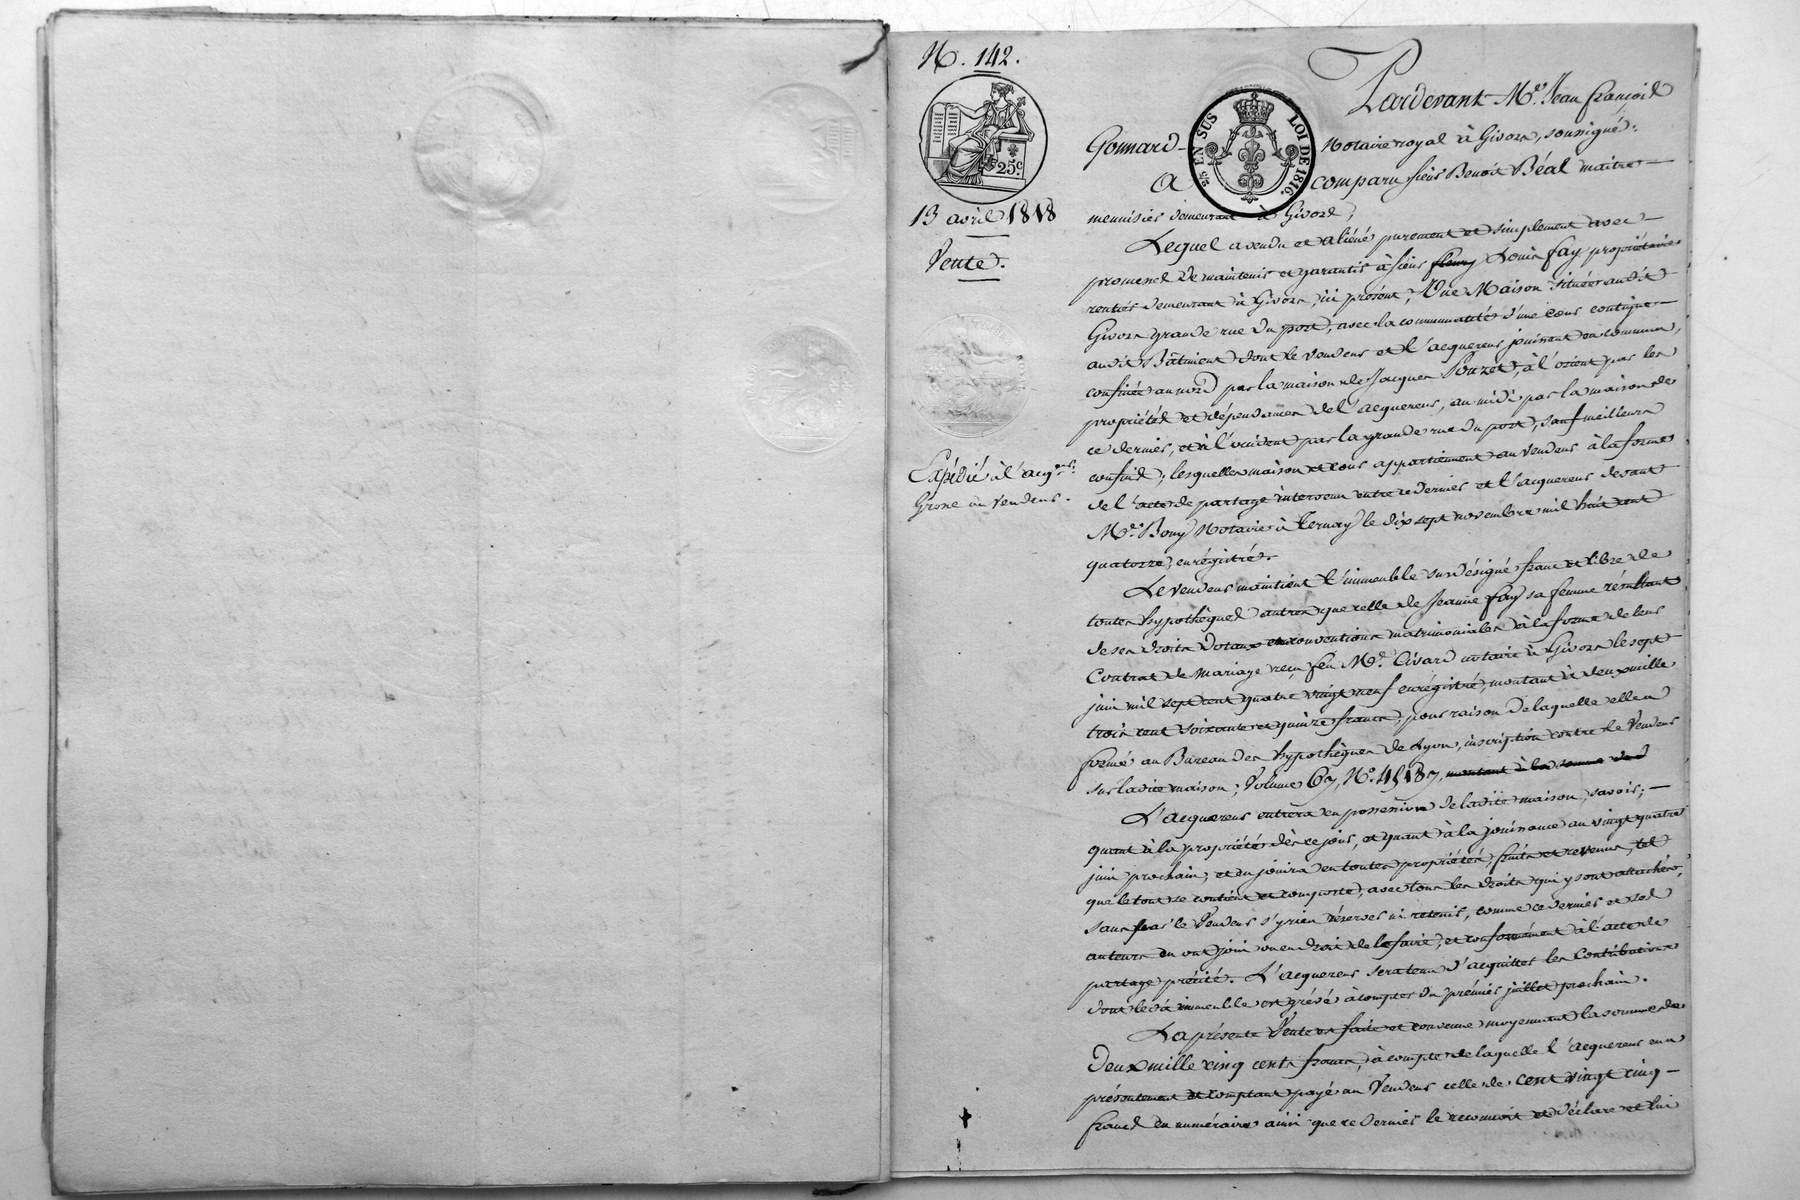 N.° 142.
25c
13 avril 1818
Vente.
Expédié à l'acq.
Grosse au vendeur.
⅖ EN SUS LOI DE 1816.
Pardevant M.e Jean françois
Gonnard Notaire royal à Givors, soussigné;
A comparu sieur Benoît Béal maître
menuisier demeurant à Givors,
Lequel a vendu et aliéné purement et simplement avec
promesse de maintenir et garantir à sieur Louis fay propriétaire
rentier demeurant à Givors, ici présent; Une Maison située audit
Givors grande rue du port, avec la communauté d'une cour contigue
audit Bâtiment dont le vendeur et l'acquereur jouissent en commun,
confinée au nord par la maison de Jacques Pouzet, à l'orient par les
propriétés et dépendances de l'acquereur, au midi par la maison de
ce dernier, et à l'occident par la grande rue du port, sauf meilleurs
confins; lesquelles maison et cour appartiennent au vendeur à la forme
de l'acte de partage intervenu entre ce dernier et l'acquereur devant
M.e Bouy Notaire à Ternay le dix sept novembre mil huit cent
quatorze, enrégistré.
Le vendeur maintient l'immeuble susdésigné franc et libre de
toutes hypothèques autres que celle de Jeanne fay sa femme résultant
de ses droits dotaux et conventions matrimoniales à la forme de leur
Contrat de Mariage reçu feu M.e Civard notaire à Givors le sept
juin mil sept cent quatre vingt neuf enrégistré, montant à deux mille
trois cent soixante et quinze francs, pour raison de laquelle elle a
formé au Bureau des hypothèques de Lyon, inscription contre le Vendeur
sur ladite maison; Volume 67, N.°
L'acquereur entrera en possession de ladite maison, savoir;
quant à la propriété dès ce jour, et quant à la jouissance au vingt quatre
juin prochain; et en jouira en toutes propriétés, fruits et revenus, tel
que le tout se contient et comporte, avec tous les droits qui y sont attachés,
sans par le Vendeur s'y rien réserver ni retenir, comme ce dernier et ses
auteurs en ont joui ou eu droit de le faire, et conformément à l'acte de
partage précité. L'acquereur sera tenu d'acquitter les Contributions
dont ledit immeuble est grévé à compter du premier juillet prochain.
La présente Vente est faite et convenue moyennant la somme de
Deux mille cinq cents francs, à compte de laquelle l'acquereur en a
présentement et comptant payé au Vendeur celle de cent vingt cinq
francs en numéraire ainsi que ce dernier le reconnoit et déclare et lui